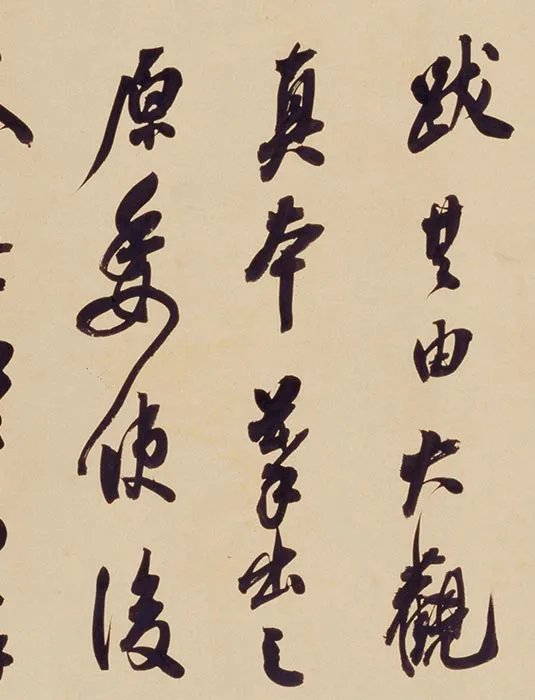 跋其由大觀
真本摹出之
原委使後